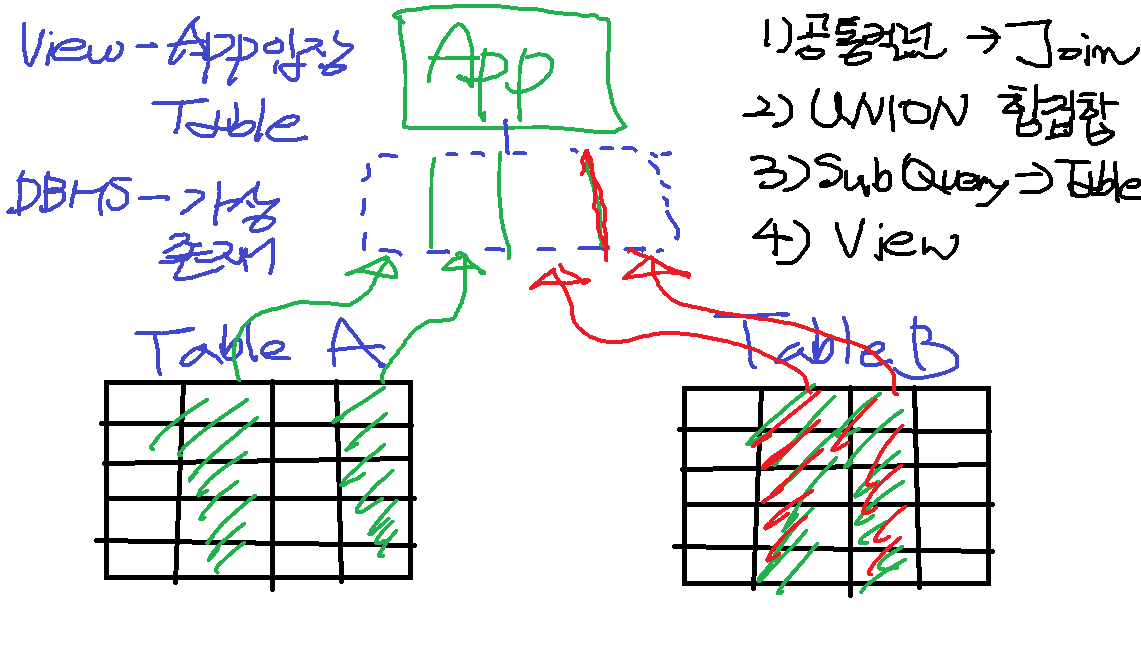 View - App 입장
Table
DBMS - 가상
존재
App
1) 공통컬럼 → Join
2) UNION 합집합
3) SubQuery → Table
4) View
Table A
Table B